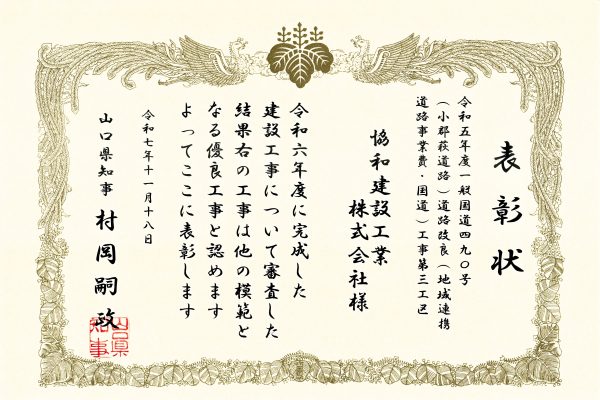 表彰状
令和五年度一般国道四九〇号
(小郡萩道路)道路改良(地域連携
道路事業費・国道)工事第三工区
協和建設工業
株式会社様
令和六年度に完成した
建設工事について審査した
結果右の工事は他の模範と
なる優良工事と認めます
よってここに表彰します
令和七年十一月十八日
山口県知事 村岡嗣政
山口県
知事